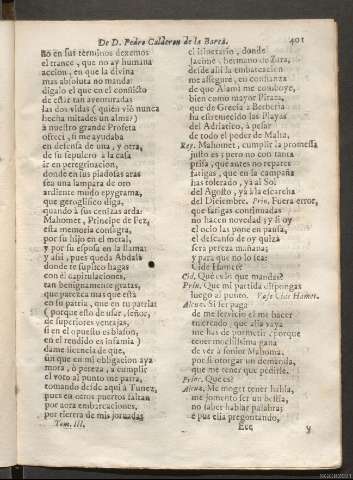 De D. Pedro Calderon de la Barca.
401
no en sus terminos dexemos
el trance, que no ay humana
accion, en que la divina
mas absoluta no manda:
digalo el que en el conflicto
de estàr tan aventuradas
las dos vidas (quièn viò nunca
hecha mitades un alma?)
à nuestro grande Profeta
ofreci, si me ayudaba
en defensa de una, y otra,
de su sepulcro à la casa
ir en peregrinacion,
donde en sus piadosas aras
sea una lampara de oro
ardiente mudo epygrama,
que geroglifico diga,
quando à sus cenizas arda:
Mahomet, Principe de Fez,
esta memoria consagra,
por su hijo en el metal,
y por su esposa en la llama:
y assi, pues queda Abdala
donde te suplico hagas
con èl capitulaciones,
tan benignamente gratas,
que parezca mas que està
en su patria, que en tu patria
(porque esto de usar, señor,
de superiores ventajas,
si en el opuesto es blason,
en el rendido es infamia)
dame licencia de que,
sin que en mi obligacion aya
mora, ò pereza, à cumplir
el voto al punto me parta,
tomando desde aqui à Tunez,
pues en otros puertos faltan
por aora embarcaciones,
por tierra de mis jornadas
Tom. III.
el itinerario, donde
Jacimè, hermano de Zara,
desde alli la embarcacion
me assegure, en confianza
de que Alami me comboye,
bien como mayor Pirata,
que de Grecia à Berberìa
ha estremecido las Playas
del Adriatico, à pesar
de todo el poder de Malta.
Rey. Mahomet, cumplir la promessa
justo es; pero no con tanta
prisa, que antes no repares
fatigas, que en la campaña
has tolerado, yà al Sol
del Agosto, yà à la escarcha
del Diciembre. Prin. Fuera error,
que fatigas continuadas
no hacen novedad; y si oy
el ocio las pone en pausa,
el descanso de oy quizà
serà pereza mañana;
y para que no lo sea:
Cide Hamet?
Cid. Què es lo que mandas?
Prin. Que mi partida dispongas
luego al punto. Vase Cide Hamet.
Alcuz. Si ser paga
de me servicio el me hacer
merendo, que alla vaya
me has de permetir, porque
tener mochissima gana
de ver à senior Mahoma,
por entregar un demanda,
que me tener que pedirle.
Prin. Que es?
Alcuz. Me moger tener habla,
me jomento ser un bestia,
no saber hablar palabra;
è pus ella pregontando,
Eee
y